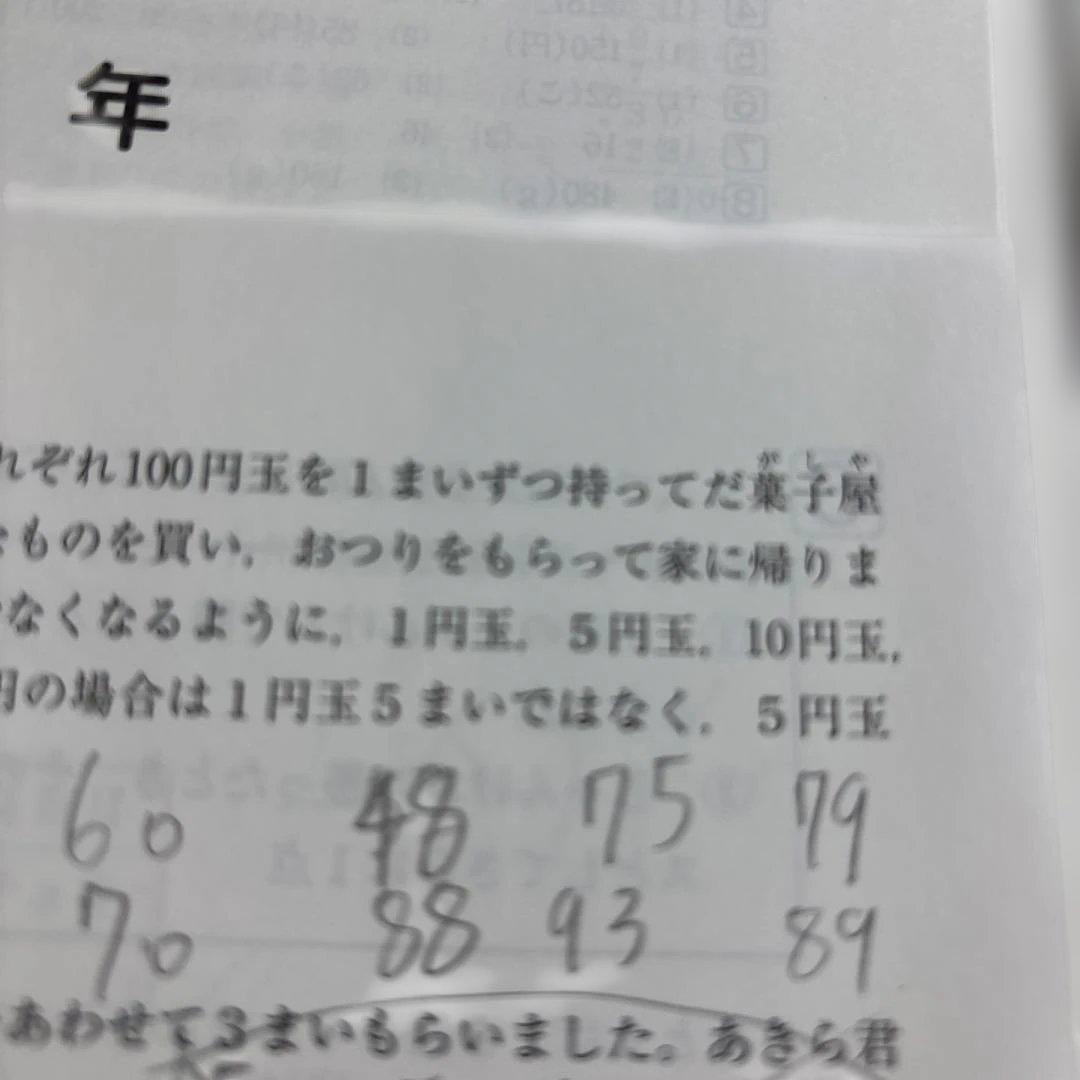 年
れぞれ100円玉を1まいずつ持ってだ菓子屋
ものを買い，おつりをもらって家に帰りま
なくなるように，1円玉，5円玉，10円玉，
円の場合は1円玉5まいではなく，5円玉
60 48 75 79
70 88 93 89
あわせて3まいもらいました。あきら君